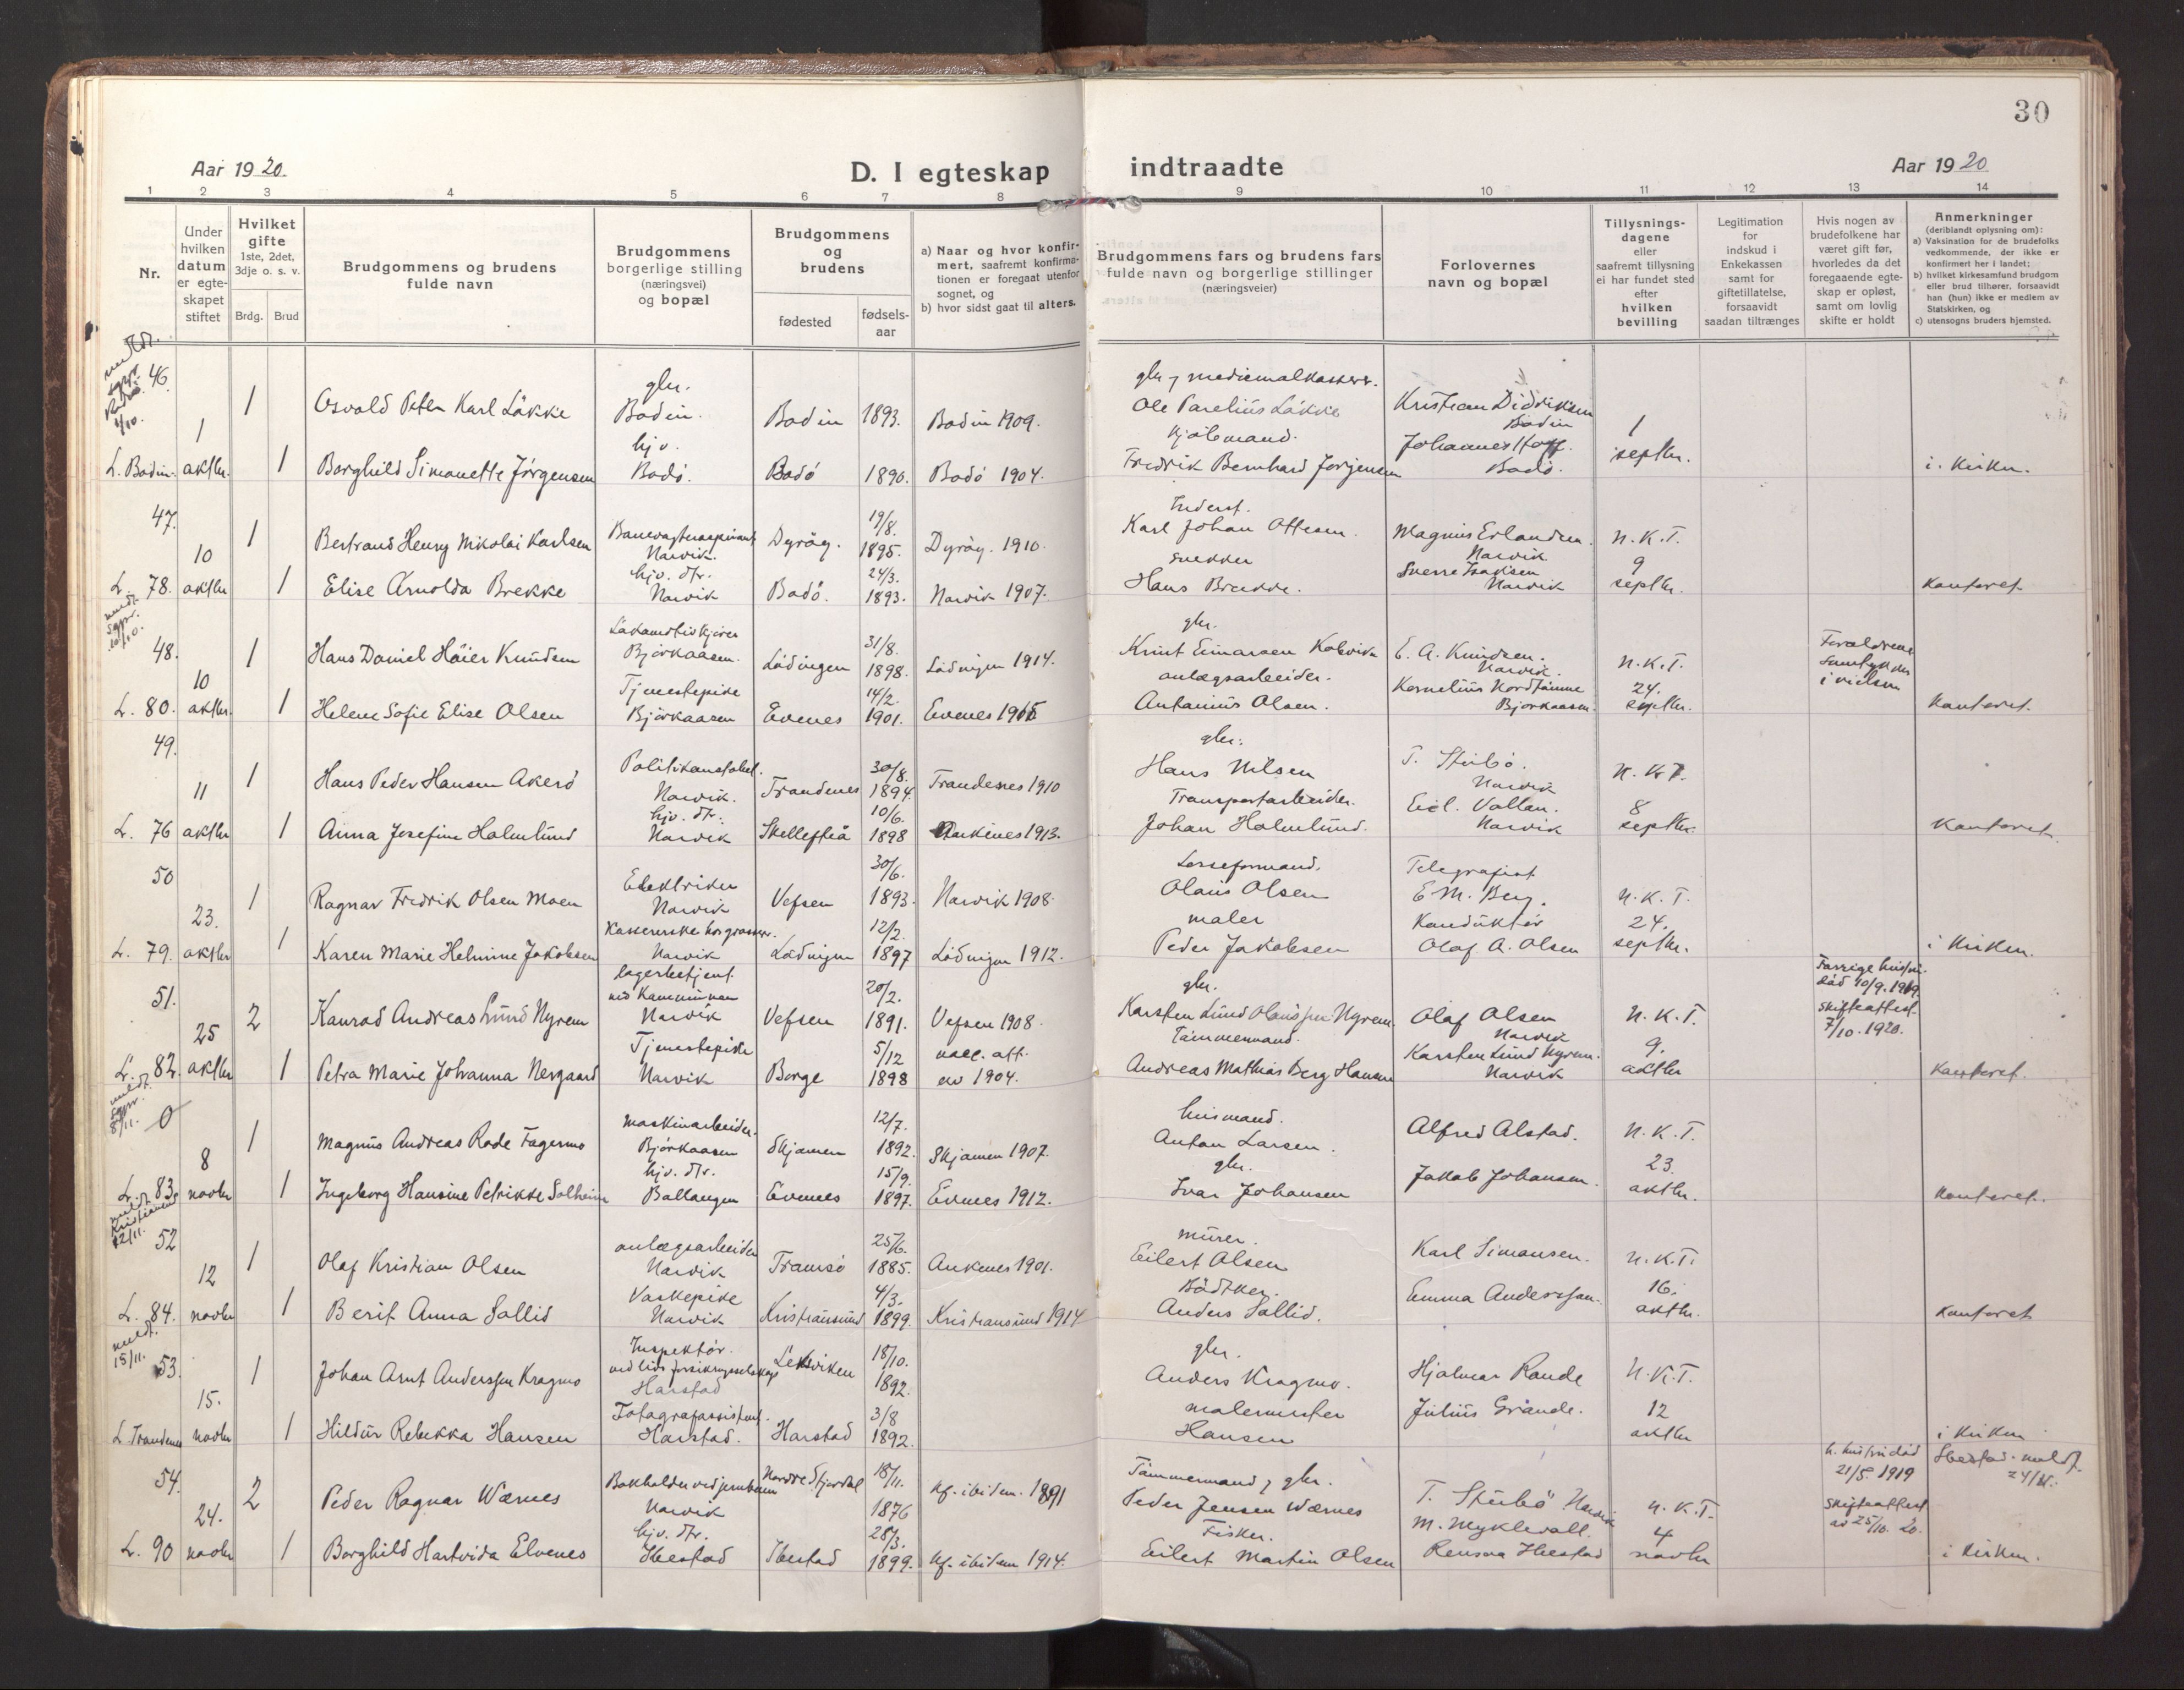 30
Aar 1920. D. I egteskap indtraadte Aar 1920
1 2 3 4 5 6 7 8 9 10 11 12 13 14
Nr.
Under hvilken datum er egteskapet stiftet
Hvilket gifte 1ste, 2det, 3dje o. s. v.
Brdg. Brud
Brudgommens og brudens fulde navn
Brudgommens borgerlige stilling (næringsvei) og bopæl
Brudgommens og brudens
fødested fødselsaar
a) Naar og hvor konfirmert, saafremt konfirmationen er foregaat utenfor sognet, og
b) hvor sidst gaat til alters.
Brudgommens fars og brudens fars fulde navn og borgerlige stillinger (næringsveier)
Forlovernes navn og bopæl
Tillysningsdagene eller saafremt tillysning ei har fundet sted efter hvilken bevilling
Legitimation for indskud i Enkekassen samt for giftetillatelse, forsaavidt saadan tiltrænges
Hvis nogen av brudefolkene har været gift før, hvorledes da det foregaaende egteskap er opløst, samt om lovlig skifte er holdt
Anmerkninger (deriblandt oplysning om):
a) Vaksination for de brudefolks vedkommende, der ikke er konfirmert her i landet;
b) hvilket kirkesamfund brudgom eller brud tilhører, forsaavidt han (hun) ikke er medlem av Statskirken, og
c) utensogns bruders hjemsted.
46.
gbr.
1 Osvald Peter Karl Løkke Bodin. Bodin 1893. Bodin 1909. Ole Parelius Løkke Kristian Didriksen Bodin 1
1 hjv. Kjøbmand. Johannes Hoff. septbr.
L. Bodin. oktbr. 1 Borghild Simonette Jørgensen Bodø. Bodø 1890. Bodø 1904. Fredrik Bernhard Jørgensen Bodø. i. Kirken.
47.
19/8. Inderst.
1 Bertrand Henry Nikolai Karlsen Banevogteraspirant Dyrøy. 1895. Dyrøy. 1910. Karl Johan Ottesen. Magnus Erlandsen. N. K. T.
10 Narvik. Snekker Narvik 9
hjv. dtr. 24/3. Sverre Isaksen
L. 78. oktbr 1 Elise Arnolda Brekke Narvik Bodø. 1893. Narvik 1907. Hans Brekke. Narvik septbr. Kontoret.
48.
31/8. gbr.
1 Hans Daniel Høier Knudsen Bjørkaasen. Lødingen 1898. Lødingen 1914. Knut Einarsen Kolvik E. A. Knudsen. N. K. T.
10 Tjenestepike 14/2. anlægsarbeider. Narvik. 24.
L. 80. oktbr. 1 Helene Sofie Elise Olsen Bjørkaasen Evenes 1901. Evenes 1915 Antonius Olsen. Bjørkaasen. septbr. Kontoret.
49.
Politikonstabel. 30/8. gbr.
1 Hans Peder Hansen Akerø Narvik. Trondenes 1894. Trondenes 1910 Hans Nilsen T. Stubø. Narvik N. K. T.
11 hjv. dtr. 10/6. Transportarbeider. 8
L. 76 oktbr 1 Anna Josefine Holmlund Narvik Skellefteå 1898 Ankenes 1913. Johan Holmlund. Narvik septbr. Kontoret.
50
30/6. Losseformand. Telegrafist
1 Ragnar Fredrik Olsen Moen Elektriker Narvik Vefsen 1893. Narvik 1908. Olaus Olsen E. M. Berg. N. K. T.
23. 12/2. maler Konduktør 24.
L. 79. oktbr 1 Karen Marie Helmine Jakobsen Narvik Lødingen 1897 Lødingen 1912. Peder Jakobsen Olaf A. Olsen septbr. i Kirken.
51.
lagerbetjent 20/2. gbr. Forrige hustru død 10/9. 1919.
2 Konrad Andreas Lund Nyrem Narvik Vefsen 1891. Vefsen 1908. Karsten Lund Olaussen Nyrem Olaf Olsen Narvik N. K. T. Skifteattest 7/10. 1920.
25 Tjenestepike 5/12 vacc. att. Tømmermand. Karsten Lund Nyrem. 9.
L. 82. oktbr 1 Petra Marie Johanna Nergaard Narvik Borge 1898 av 1904. Andreas Mathias Berg Hansen Narvik oktbr Kontoret.
0
maskinarbeider. 12/7. husmand.
1 Magnus Andreas Rode Fagermo Bjørkaasen Skjomen 1892. Skjomen 1907. Anton Larsen. Alfred Alstad. N. K. T.
8 hjv. dtr. 15/9. gbr. 23.
L. 83. novbr 1 Ingeborg Hansine Petrikke Solheim Ballangen Evenes 1897. Evenes 1912. Ivar Johansen Jakob Johansen. oktbr. Kontoret.
52
anlægsarbeider 25/6. murer.
1 Olaf Kristian Olsen Narvik Tromsø 1885. Ankenes 1901. Eilert Olsen Karl Simonsen. N. K. T.
12 Vaskepike 4/3. Bødtker. 16.
L. 84. novbr 1 Berit Anna Sollid Narvik Kristiansund 1899. Kristiansund 1914 Anders Sollid. Emma Andersson. oktbr. Kontoret
53.
Inspektør. 18/10. gbr.
1 Johan Arnt Anderssen Kragmo Harstad Leksviken 1892. Anders Kragmo. Hjalmar Rande N. K. T.
15. 3/8 malermester Julius Grande. 12
L. Trondenes novbr 1 Hildur Rebekka Hansen Harstad. Harstad 1892. Hansen oktbr i Kirken
54.
Nordre Stjørdal 18/11. Tømmermand, gbr. 21/5 1919 24/11.
2 Peder Ragnar Wærnes Narvik 1876 kf. ibidem. 1891 Peder Jensen Wærnes T. Stubø Narvik N. K. T. Skifteattest av 25/10. 20.
24. hjv. dtr. 28/3. Fisker. M. Myklevoll. 4
L. 90 novbr 1 Borghild Hartvida Elvenes Ibestad Ibestad 1899. kf. ibidem 1914. Eilert Martin Olsen Rensaa Ibestad novbr i Kirken.